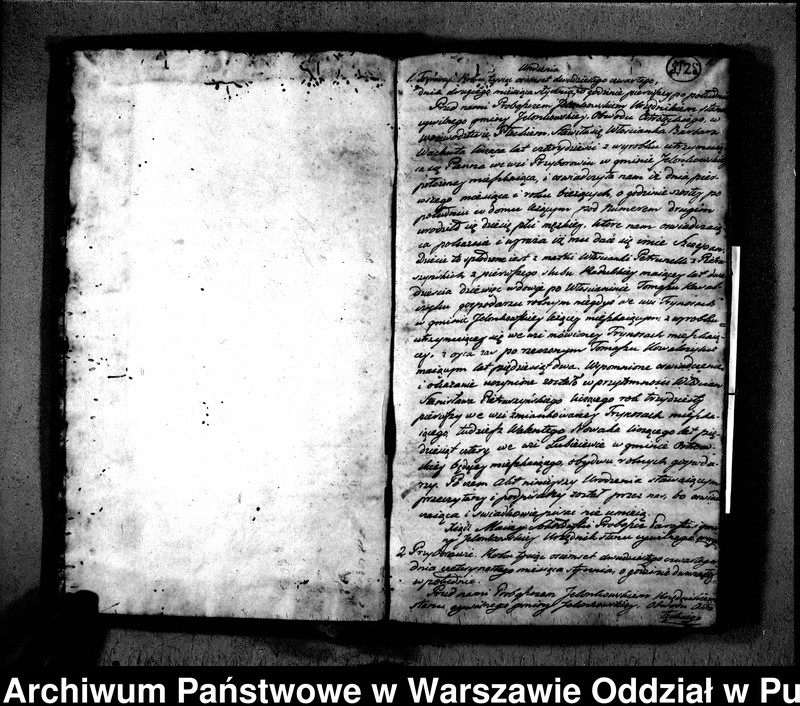 Urodzenia
1. Trynosy. Roku tysiąc ośmset dwudziestego czwartego,
dnia drugiego miesiąca stycznia o godzinie pierwszey po południu
Przed nami Proboszczem Jelonkowskim Urzędnikiem stanu
cywilnego gminy Jelonkowskiey, Obwodu Ostrołęckiego, w
Województwie Płockiem, stawiła się Włościanka Barbara
licząca lat czterdzieści z wyrobku utrzymuią-
ca się we wsi Przyborowiu w gminie Jelonkowskiey
położoney mieszkaiąca, i oświadczyła nam iż dnia pier-
wszego miesiąca i roku bieżących, o godzinie szóstey po
południu w domu leżącym pod numerem drugim
urodziło się dziecię płci męskiey, które nam oświadczaią-
ca pokazała i wyraża iż mu dać się imie Szczepan.
Dziecie to spłodzone iest z matki Włościanki Petronelli z
z pierwszego ślubu maiącey lat dwa-
dzieścia dziewięć wdową po Włościaninie Tomaszu Kowal-
czyku gospodarzu rolnym niegdyś we wsi Trynosach
w gminie Jelonkowskiey leżącey mieszkaiącym; z wyrobku
utrzymuiącey się we wsi mówioney Trynosach mieszkaią-
cey. z oyca zaś po rzeczonym Tomaszu Kowalczyku
maiącym lat pięćdziesiąt dwa. Wspomnione oświadczenie
i okazanie uczynione zostało w przytomności Włościan
Stanisława liczącego rok trzydziesty
pierwszy we wsi zmiankowaney Trynosach mieszka-
iącego, tudzież Walentego Nowaka liczącego lat pię-
dziesiąt cztery we wsi Lubieiewie w gminie
będącey mieszkaiącego, obydwu rolnych gospoda-
rzy. Po czem Akt ninieyszy Urodzenia stawaiącym
przeczytany i podpisany został przez nas, bo oświad-
czaiąca i świadkowie pisać nie umieią.
Xiądz Maciey Proboszcz Parafii i gmi-
ny Jelonkowskiey Urzędnik stanu cywilnego
2 Przyborowie. Roku tysiąc ośmset dwudziestego czwartego
dnia czternastego miesiąca stycznia o godzinie dwunastey
w południe.
Przed nami Proboszczem Jelonkowskim Urzędnikiem
stanu cywilnego gminy Jelonkowskiey, Obwodu Ostro-
łęckiego
Archiwum Państwowe w Warszawie Oddział w Pu